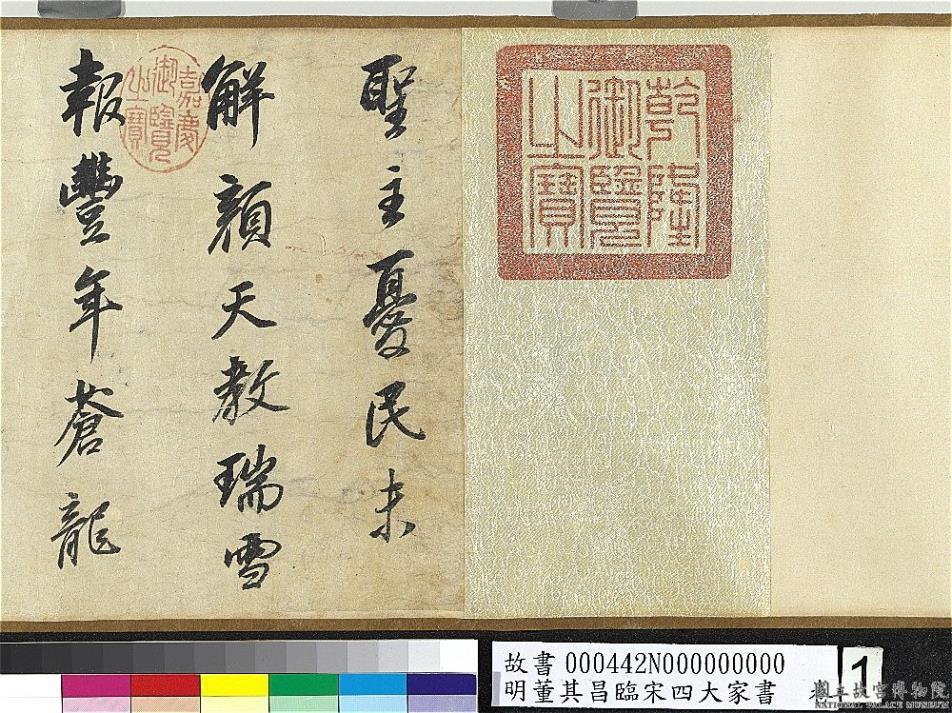 乾隆
御覽
之寶
聖主憂民未
解顏天教瑞雪
嘉慶
御覽
之寶
報豐年蒼龍
故書 000442N000000000
明董其昌臨宋四大家書 卷
1
國立故宮博物院
NATIONAL PALACE MUSEUM